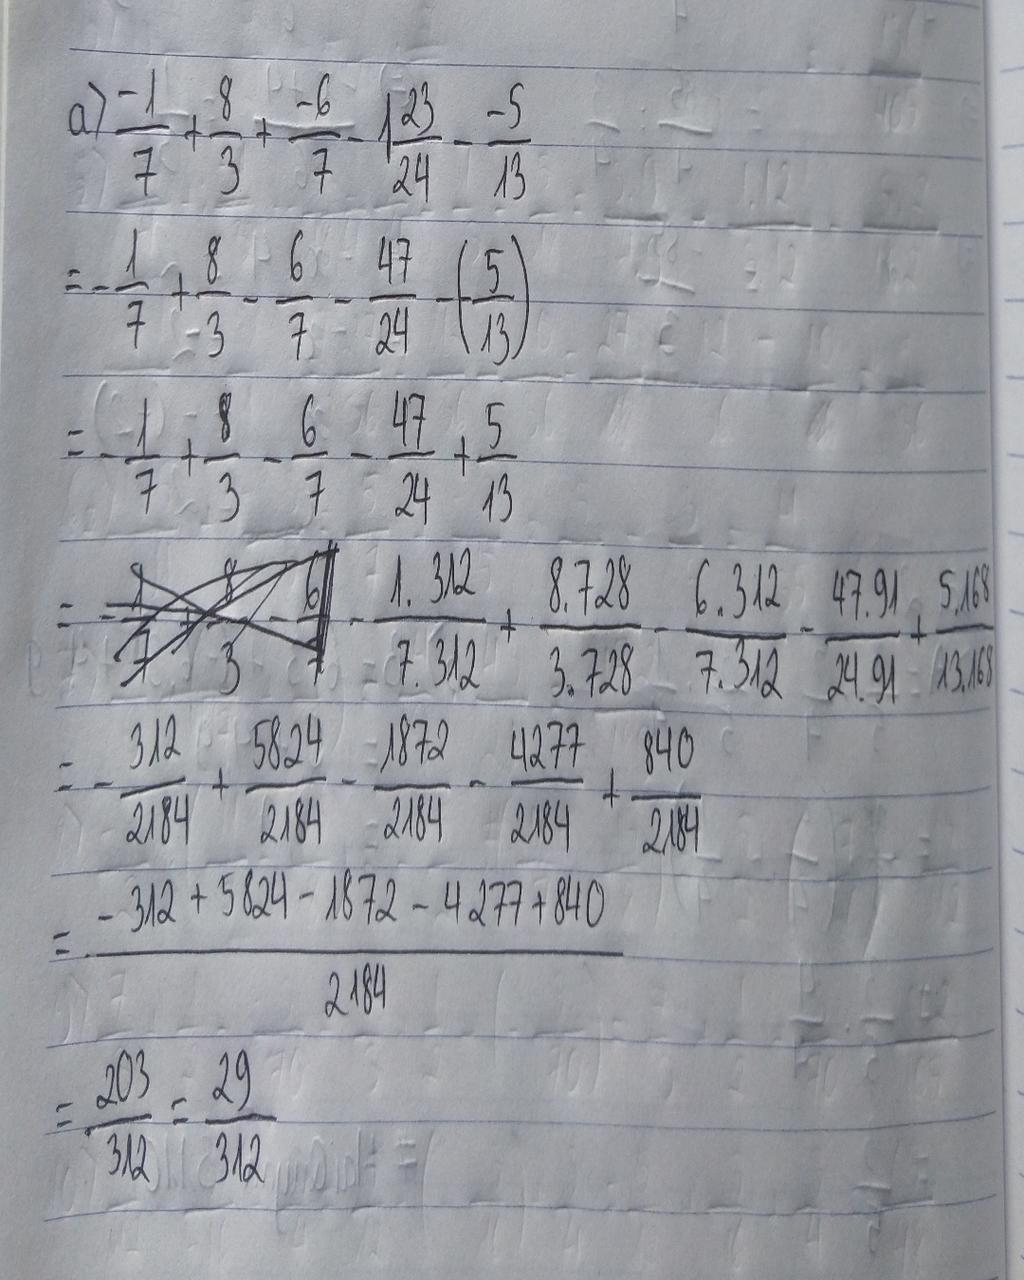 a) -1/7 + 8/3 + -6/7 - 1 23/24 - -5/13
= -1/7 + 8/3 - 6/7 - 47/24 - (-5/13)
= -1/7 + 8/3 - 6/7 - 47/24 + 5/13
= - 1.312/7.312 + 8.728/3.728 - 6.312/7.312 - 47.91/24.91 + 5.168/13.168
= - 312/2184 + 5824/2184 - 1872/2184 - 4277/2184 + 840/2184
= -312 + 5824 - 1872 - 4277 + 840 / 2184
= 203/312 = 29/312